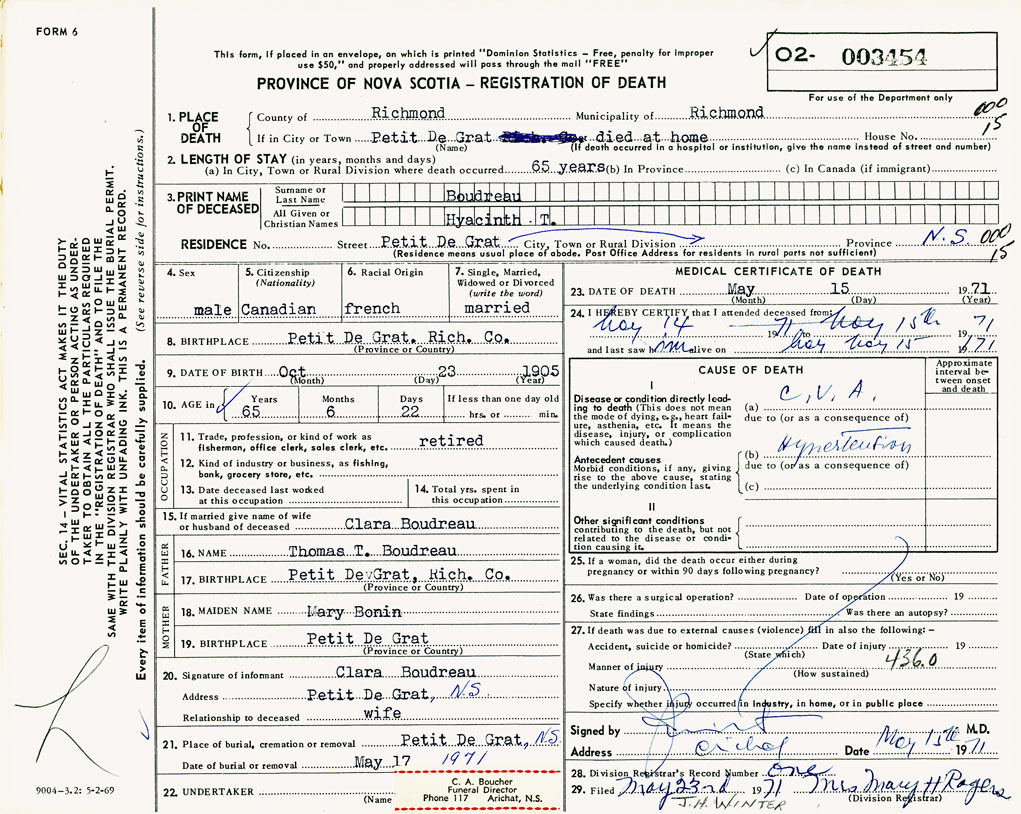 FORM 6
This form, if placed in an envelope, on which is printed "Dominion Statistics – Free, penalty for improper
use $50," and properly addressed will pass through the mail "FREE"
O2- 003454
For use of the Department only
PROVINCE OF NOVA SCOTIA – REGISTRATION OF DEATH
1. PLACE OF DEATH
County of Richmond Municipality of Richmond 000
If in City or Town Petit De Grat died at home House No. 15
(Name) (If death occurred in a hospital or institution, give the name instead of street and number)
2. LENGTH OF STAY (in years, months and days)
(a) In City, Town or Rural Division where death occurred 65 years (b) In Province (c) In Canada (if immigrant)
3. PRINT NAME OF DECEASED
Surname or Last Name Boudreau
All Given or Christian Names Hyacinth T.
RESIDENCE No. Street Petit De Grat City, Town or Rural Division Province N.S. 000
(Residence means usual place of abode. Post Office Address for residents in rural parts not sufficient) 15
4. Sex
male
5. Citizenship
(Nationality)
Canadian
6. Racial Origin
french
7. Single, Married,
Widowed or Divorced
(write the word)
married
8. BIRTHPLACE Petit De Grat. Rich. Co.
(Province or Country)
9. DATE OF BIRTH Oct 23 1905
(Month) (Day) (Year)
10. AGE in
Years Months Days If less than one day old
65 6 22 hrs. or min.
OCCUPATION
11. Trade, profession, or kind of work as
fisherman, office clerk, sales clerk, etc. retired
12. Kind of industry or business, as fishing,
bank, grocery store, etc.
13. Date deceased last worked
at this occupation
14. Total yrs. spent in
this occupation
15. If married give name of wife
or husband of deceased Clara Boudreau
FATHER
16. NAME Thomas T. Boudreau
17. BIRTHPLACE Petit De Grat, Rich. Co.
(Province or Country)
MOTHER
18. MAIDEN NAME Mary Bonin
19. BIRTHPLACE Petit De Grat
(Province or Country)
20. Signature of informant Clara Boudreau
Address Petit De Grat, N.S.
Relationship to deceased wife
21. Place of burial, cremation or removal Petit De Grat, N.S.
Date of burial or removal May 17 1971
22. UNDERTAKER
(Name
C. A. Boucher
Funeral Director
Phone 117 Arichat, N.S.
MEDICAL CERTIFICATE OF DEATH
23. DATE OF DEATH May 15 1971
(Month) (Day) (Year)
24. I HEREBY CERTIFY that I attended deceased from:
May 14 1971 to May 15th 1971
and last saw him alive on May 15 1971
CAUSE OF DEATH
Approximate
interval be-
tween onset
and death
I
Disease or condition directly lead-
ing to death (This does not mean
the mode of dying, e.g., heart fail-
ure, asthenia, etc. It means the
disease, injury, or complication
which caused death.)
(a) C.V.A.
due to (or as a consequence of)
Antecedent causes
Morbid conditions, if any, giving
rise to the above cause, stating
the underlying condition last.
(b) Hypertention
due to (or as a consequence of)
(c)
II
Other significant conditions
contributing to the death, but not
related to the disease or condi-
tion causing it.
25. If a woman, did the death occur either during
pregnancy or within 90 days following pregnancy?
(Yes or No)
26. Was there a surgical operation? Date of operation 19
State findings Was there an autopsy?
27. If death was due to external causes (violence) fill in also the following: –
Accident, suicide or homicide? Date of injury 19
(State which)
436.0
Manner of injury
(How sustained)
Nature of injury
Specify whether injury occurred in industry, in home, or in public place
Signed by M.D.
Address Date May 15th 1971
28. Division Registrar's Record Number One
29. Filed May 23rd 1971 Mrs Mary H Rogers
J.H. WINTER (Division Registrar)
SEC. 14 – VITAL STATISTICS ACT MAKES IT THE DUTY
OF THE UNDERTAKER OR PERSON ACTING AS UNDER-
TAKER TO OBTAIN ALL THE PARTICULARS REQUIRED
IN THE "REGISTRATION OF DEATH" AND TO FILE THE
SAME WITH THE DIVISION REGISTRAR WHO SHALL ISSUE THE BURIAL PERMIT.
WRITE PLAINLY WITH UNFADING INK. THIS IS A PERMANENT RECORD.
Every item of information should be carefully supplied. (See reverse side for instructions.)
9004-3.2: 5-2-69